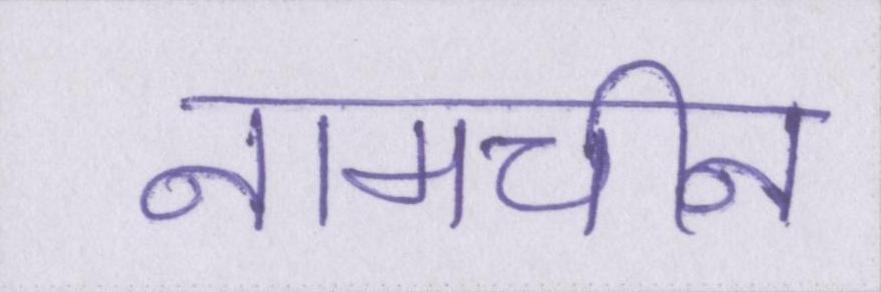 नामचीन